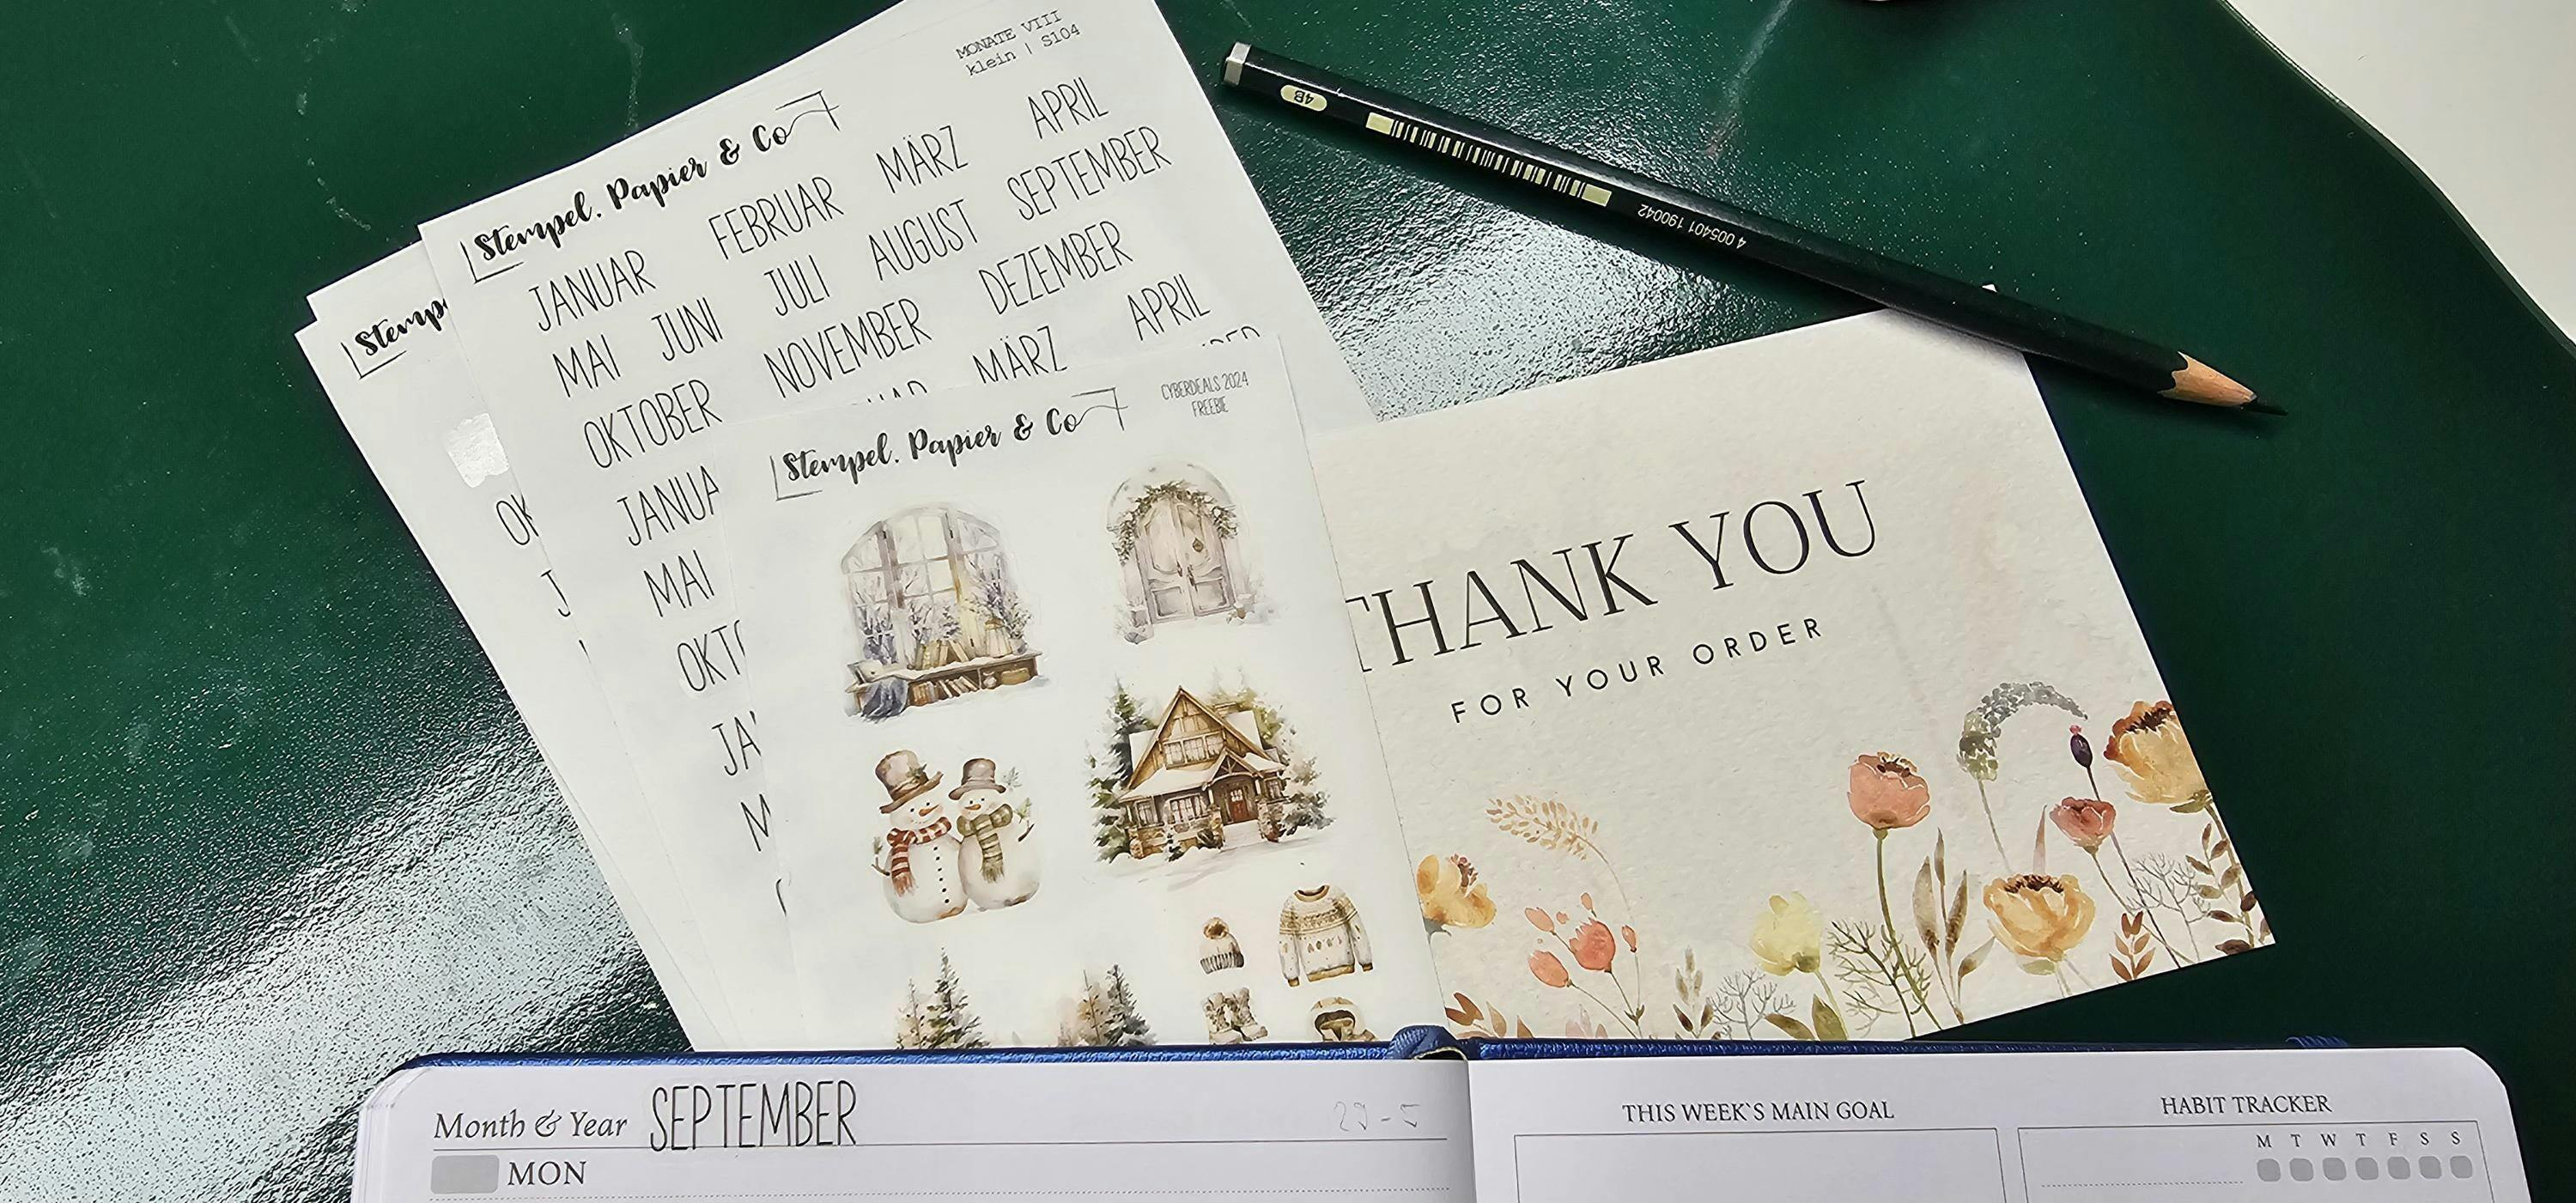 MONATE VIII
klein | S104
Stempel. Papier & Co
JANUAR FEBRUAR MÄRZ APRIL
MAI JUNI JULI AUGUST SEPTEMBER
OKTOBER NOVEMBER DEZEMBER
JANUA MÄRZ APRIL
MAI
OKT
JA
Stemp
OK
J
CYBERDEALS 2024
FREEBIE
Stempel. Papier & Co
4B
4 005401 190042
THANK YOU
FOR YOUR ORDER
Month & Year SEPTEMBER 29-5
MON
THIS WEEK'S MAIN GOAL
HABIT TRACKER
M T W T F S S